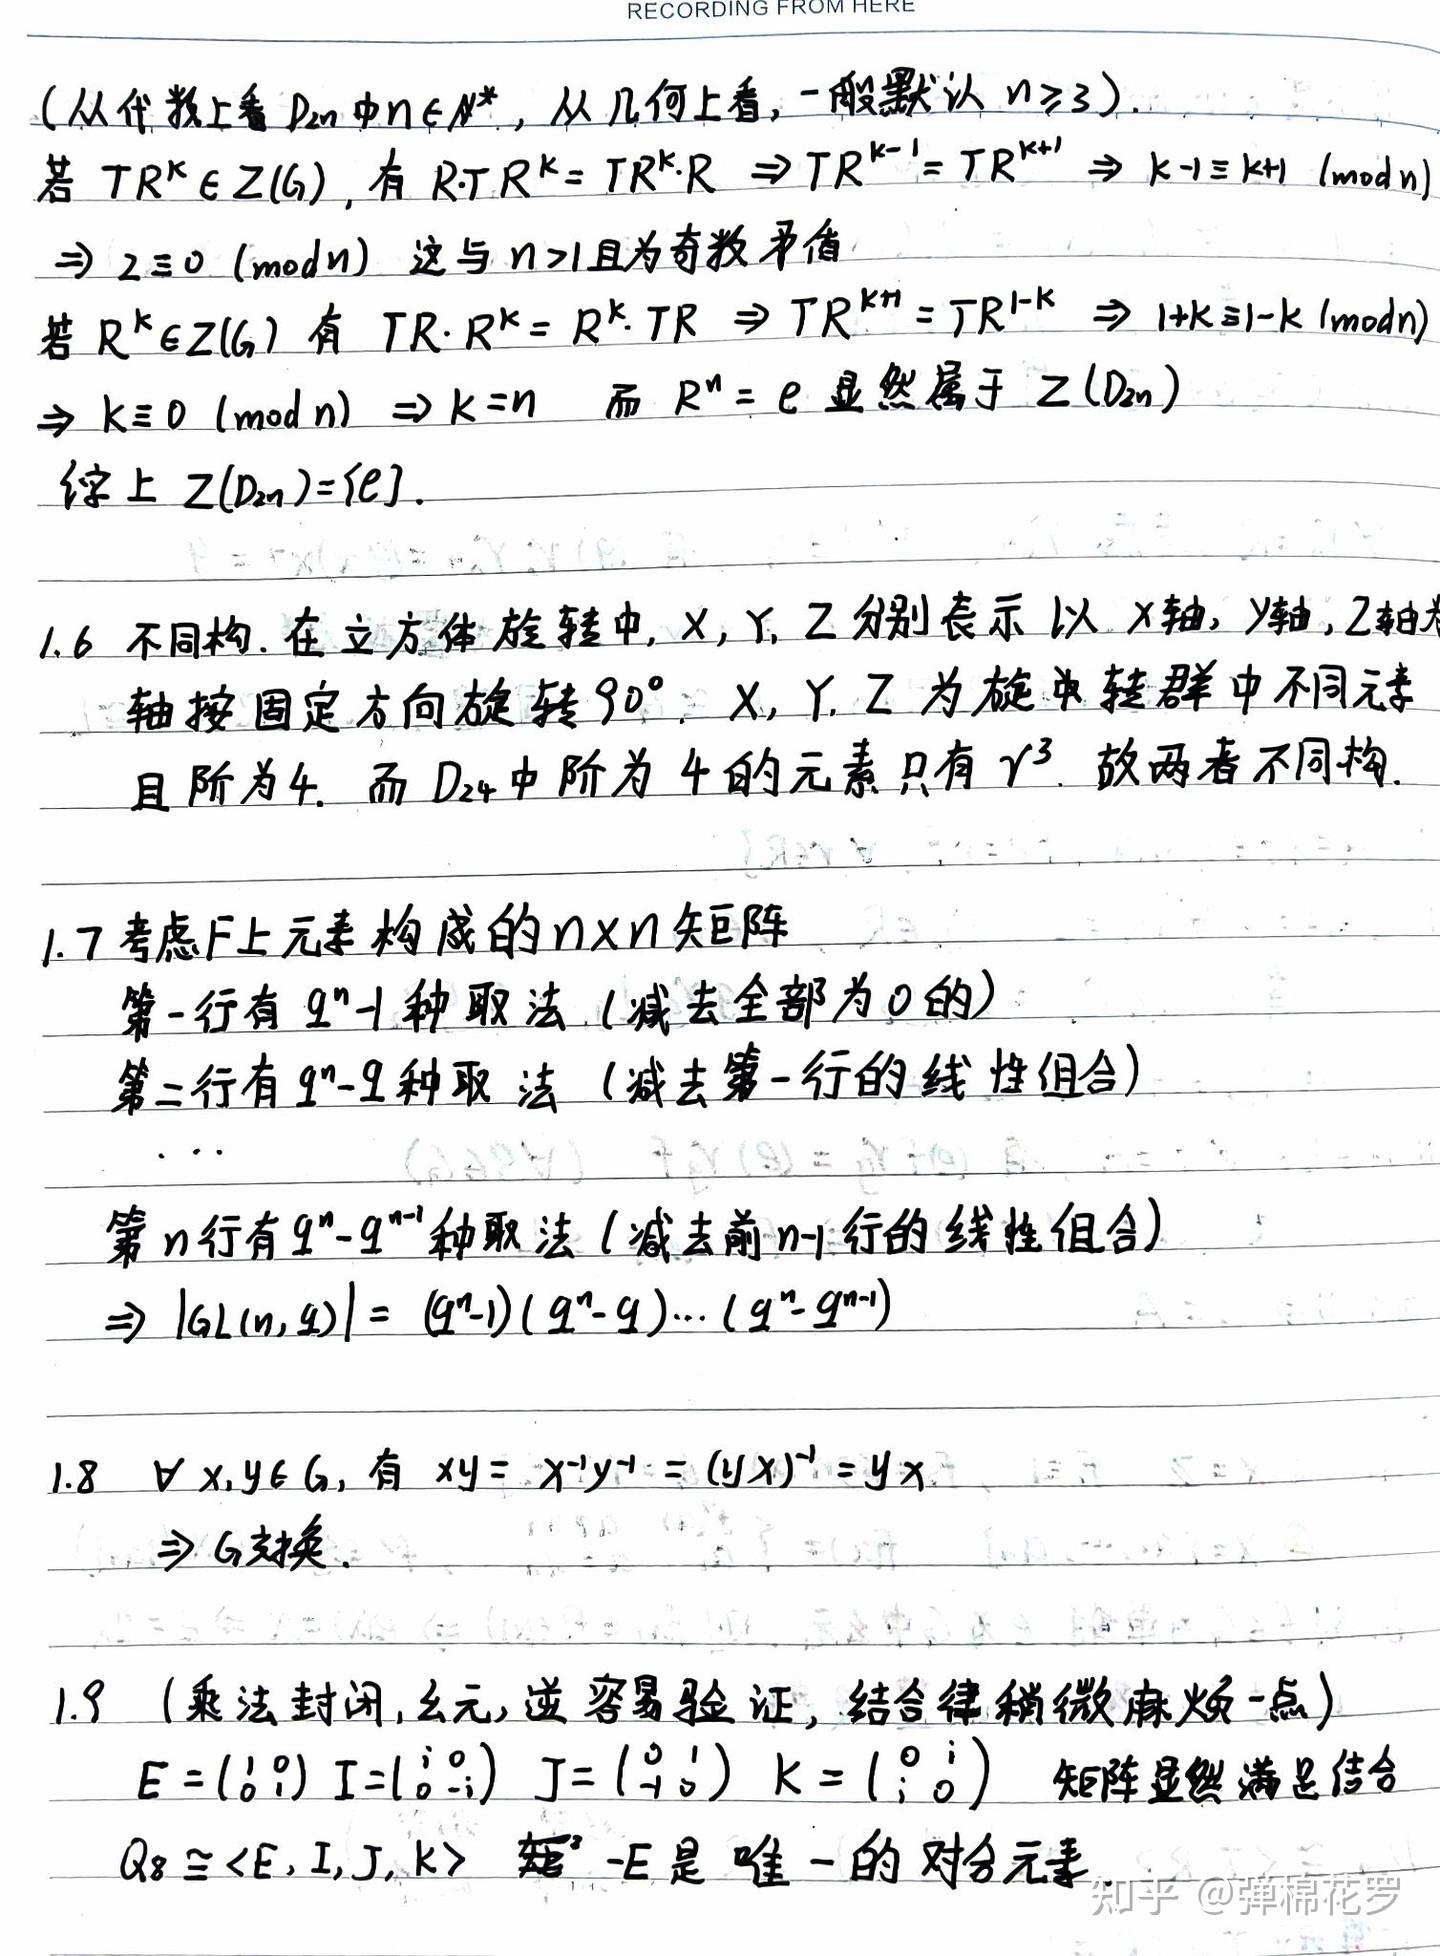 RECORDING FROM HERE
(从代数上看 D₂ₙ中n∈N*, 从几何上看,一般默认 n≥3).
若 TRᵏ∈Z(G), 有 R·TRᵏ=TRᵏ·R ⇒ TRᵏ⁻¹=TRᵏ⁺¹ ⇒ k-1≡k+1 (mod n)
⇒ 2≡0 (mod n) 这与n>1且为奇数矛盾
若 Rᵏ∈Z(G) 有 TR·Rᵏ=Rᵏ·TR ⇒ TRᵏ⁺¹=TR¹⁻ᵏ ⇒ 1+k≡1-k (mod n)
⇒ k≡0 (mod n) ⇒ k=n 而 Rⁿ=e 显然属于 Z(D₂ₙ)
综上 Z(D₂ₙ)={e}.
1.6 不同构.在立方体旋转中, X, Y, Z 分别表示 以 X轴, Y轴, Z轴为
轴按固定方向旋转90°. X, Y, Z 为旋转群中不同元素
且阶为4. 而 D₂₄中阶为4的元素只有 r³. 故两者不同构.
1.7 考虑F上元素构成的n×n矩阵
第一行有 qⁿ-1种取法 (减去全部为0的)
第二行有qⁿ-q种取法 (减去第一行的线性组合)
...
第n行有qⁿ-qⁿ⁻¹种取法 (减去前n-1行的线性组合)
⇒ |GL(n,q)| = (qⁿ-1)(qⁿ-q)...(qⁿ-qⁿ⁻¹)
1.8 ∀ x,y∈G, 有 xy= x⁻¹y⁻¹ = (yx)⁻¹ = yx
⇒ G交换.
1.9 (乘法封闭,幺元,逆容易验证,结合律稍微麻烦一点)
E=(1 0 0 1) I=(i 0 0 -i) J=(0 1 -1 0) K=(0 i i 0) 矩阵显然满足结合
Q₈≅<E, I, J, K> -E是唯一的对合元素.
知乎 @弹棉花罗